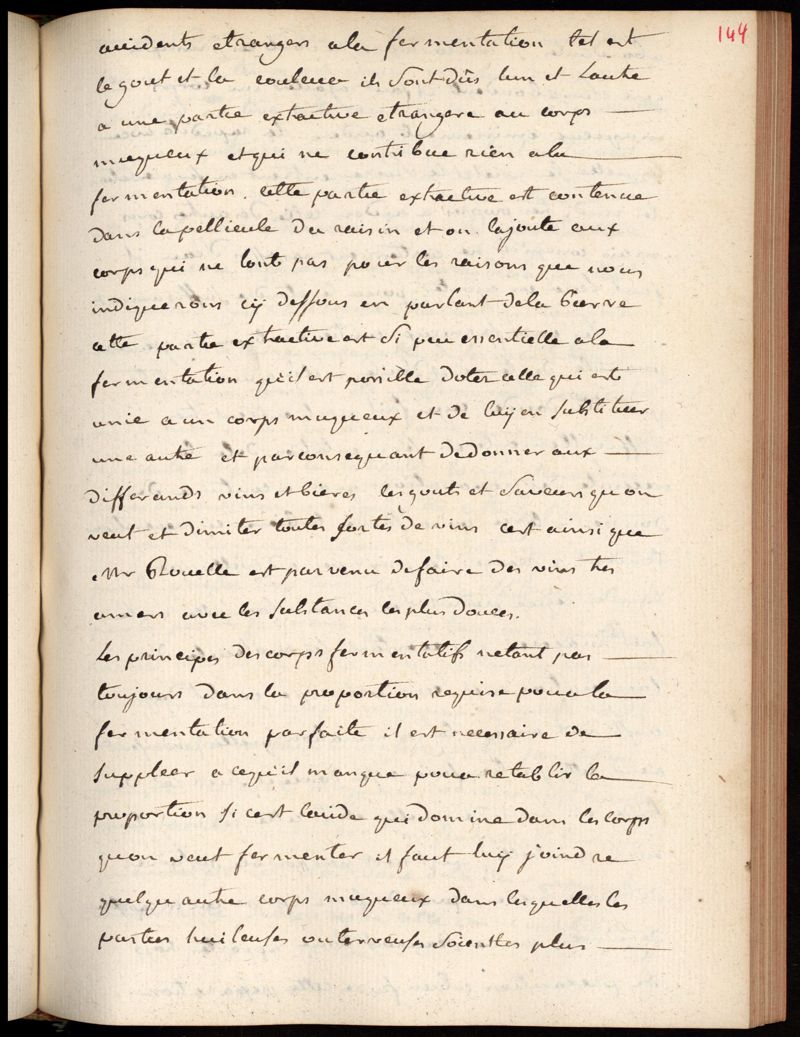 144
accidents etrangers a la fermentation tel est
le gout et la couleur ils sont dûs lun et Lautre
a une partie extractive etrangere au corps
muqueux et qui ne contribue rien a la
fermentation. cette partie extractive est contenue
dans la pellicule du raisin et on lajoute aux
corps qui ne lont pas pour les raisons que nous
indiquerons cÿ dessous en parlant de la bierre
cette partie extractive est si peu essentielle a la
fermentation qu'il est possible doter celle qui est
unie a un corps muqueux et de luÿ en substituer
une autre et par consequant de donner aux
differands vins et bieres les gouts et saveurs quon
veut et dimiter toutes sortes de vins cest ainsi que
Mr Rouelle est parvenu de faire des vins tres
amers avec les substances les plus douces.
Les principes des corps fermentatifs netant pas
toujours dans la proportion requise pour la
fermentation parfaite il est necessaire de
suppleer a ce qu'il manque pour retablir la
proportion si cest lacide qui domine dans les corps
quon veut fermenter il faut luÿ joindre
quelqu autre corps muqueux dans lesquelles les
parties huileuses ou terreuses soientles plus